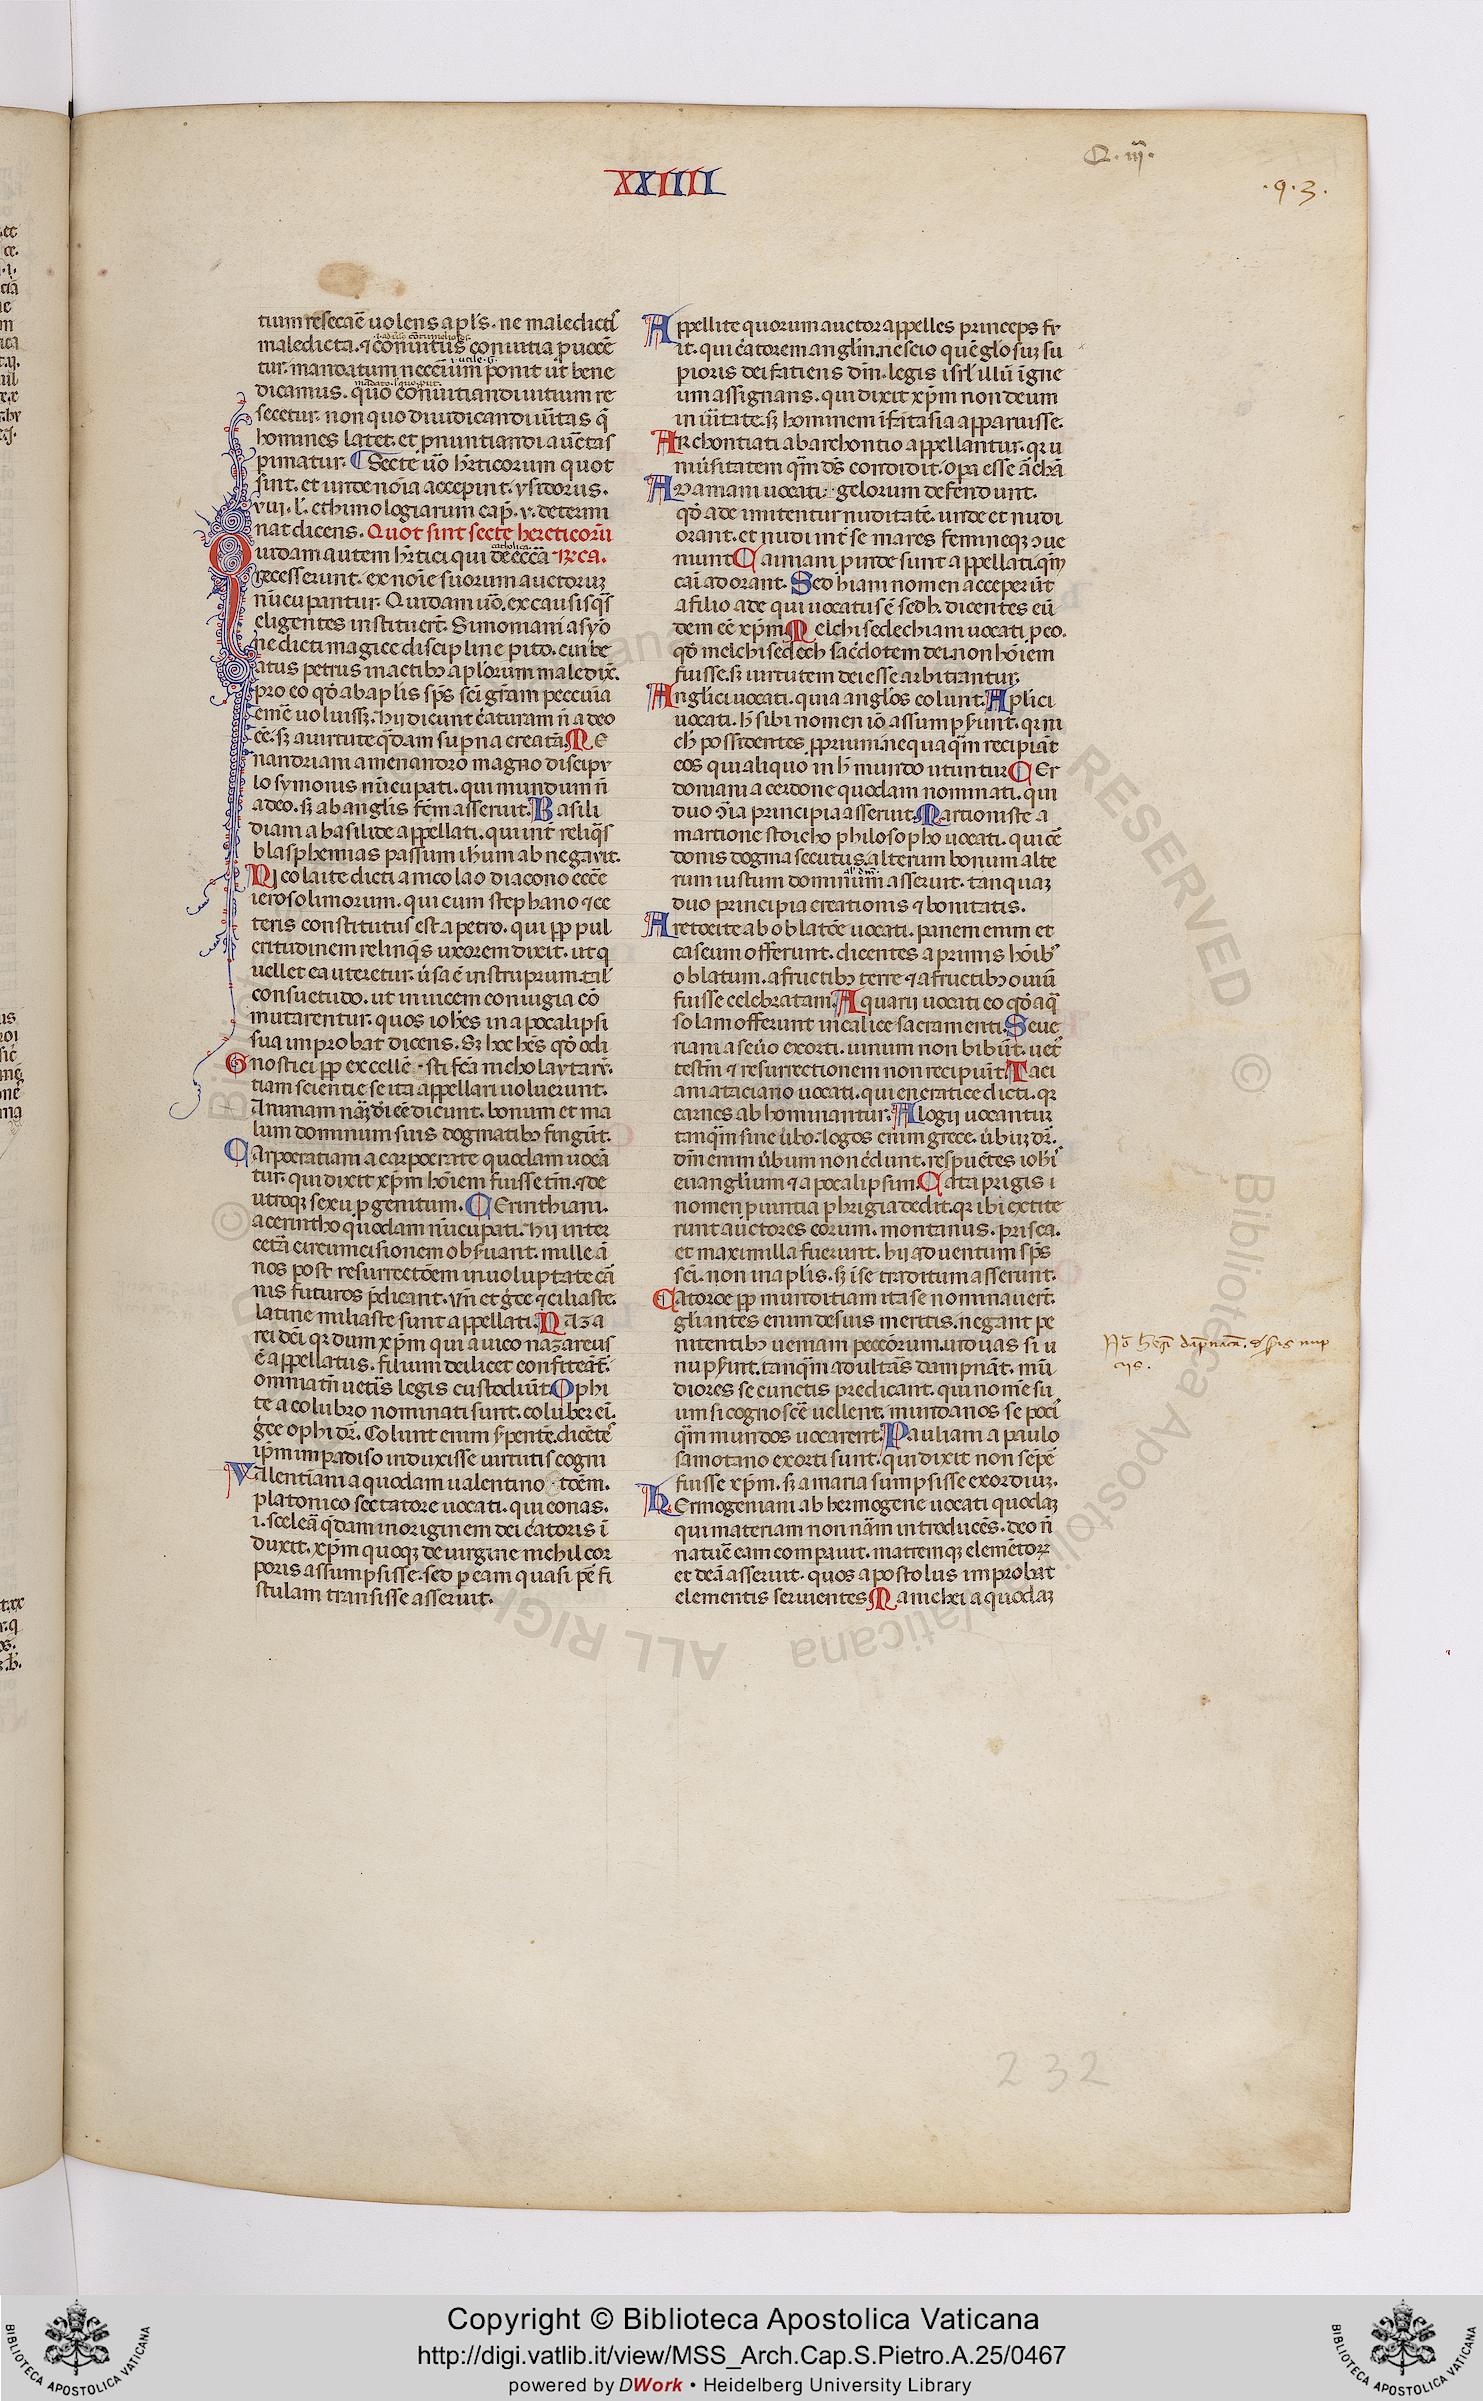 XXIIII
Q. iij.
.93.
tium resecare uolens apls. ne maledicti
maledicta. et conuitius conuitia puocē
tur. mandatum neccīum ponit ut bene
dicamus. quo conuitiandi uitium re
secetur. non quo diiudicandi uitas q̄
homines latet. et pnuntiandi auētas
pimatur. Secte uō hrticorum quot
sint. et unde noīa acceperint. ysidorus.
viii. l. ethimologiarum cap. v. determi
nat dicens. Quot sint secte hereticorū
uidam autem hrtici qui de eccā
catholica
recesserunt. ex noīe suorum auctoruz
nūcupantur. Quidam uō. ex causis q̄s
eligentes instituerē. Simoniani a symo
ne dicti magice discipline pito. cui be
atus petrus in actibz aplorum maledix̄.
pro eo qd ab aplis sps sci gram peccunia
emē uoluissz. hij dicunt c̄aturam n̄ a deo
ēē. sz a uirtute qdam supna creatā. Me
nandriani a menandro magno discipu
lo symonis nūcupati. qui mundum n̄
a deo. sz ab anglis fcm asserunt. Basili
diani a basilide appellati. qui int reliqs
blasphemias passum ihum abnegarit.
Nicolaite dicti a nicolao diacono eccēe
ierosolimorum. qui cum stephano et ce
teris constitutus est a petro. qui pp pul
critudinem relinqs uxorem dixit. ut q
uellet ea uteretur. ūsa ē in struprum tal
consuetudo. ut inuicem coniugia cō
mutarentur. quos iohes in apocalipsi
sua improbat dicens. Sz hoc hes qd odi
sti fca nicholaytarē.
Gnostici pp excellē
tiam scientie se ita appellari uoluerunt.
Animam nām dei ēē dicunt. bonum et ma
lum dominum suis dogmatibz fingūt.
Carpocratiani a carpocrate quodam uocā
tur. qui dixit xpm hoīem fuisse tm̄. et de
utroqz sexu pgenitum. Cerinthiani.
a cerintho quodam nūcupati. hii inter
cetā circumcisionem obseruant. mille ā
nos post resurrectōem in uoluptate cā
nis futuros pdicant. vn̄ et gce et ciliaste.
latine miliaste sunt appellati. Naza
rei dc̄i qr dum xpm qui a uico nazareus
ē appellatus. filium dei licet confiteāt.
omnia tn̄ uetis legis custodiūt. Ophi
te a colubro nominati sunt. coluber ei.
gce ophi dr̄. Colunt enim serpentē. dicētes
ipm in padiso induxisse uirtutis cogni
tōem.
Valentiani a quodam ualentino
platonico sectatore uocati. qui eonas.
i. scelcā qdam in originem dei c̄atoris ī
duxit. xpm quoqz de uirgine nichil cor
poris assumpsisse. sed p eam quasi pē fi
stulam transisse asserunt.
Appellite quorum auctor appelles princeps fu
it. qui c̄atorem anglm. nescio quē glosuz su
pioris dei fatiens dm̄. legis isrl illū igne
um assignans. qui dixit xpm non deum
in ūitate. sz hominem ī fātasia apparuisse.
Archontiati ab archontio appellantur. qr u
niūsitatem qm̄ ds̄ condidit. opa esse archā
gelorum defendunt.
Adamiani uocati.
qd ade imitentur nuditatē. unde et nudi
orant. et nudi int se mares femineqz ɔue
niunt. Cainiani pinde sunt appellati. qm̄
cain adorant. Sedhiani nomen acceperūt
a filio ade qui uocatus ē sedh. dicentes eū
dem ēē xpm. Melchisedechiani uocati. peo.
qd melchisedech sacdotem dei. non hoīem
fuisse. sz uirtutem dei esse arbitrantur.
Anglici uocati. quia anglos colunt. Aplici
uocati. h̄ sibi nomen iō assumpserunt. qr ni
ch possidentes pprium. nequaqm recipiūt
eos qui aliquo in h̄ mundo utuntur. Cer
doniani a cerdone quodam nominati. qui
duo ɔtria principia asserunt. Martioniste a
martione stoicho philosopho uocati. qui cē
donis dogma secutus. alterum bonum alte
rum iustum dominum asserunt. tanquaz
al' dm̄
duo principia creationis et bonitatis.
Aretocite ab oblatōe uocati. panem enim et
caseum offerunt. dicentes a primis hoībz
oblatum. a fructibz terre et a fructibz ouiū
fuisse celebratam. Aquarii uocati eo qd aq
solam offerunt in calice sacramenti. Seue
riani a seuo exorti. uinum non bibūt. uet
testm̄ et resurrectionem non recipiūt. Taci
ani a taciano uocati. qui encratice dicti. qr
carnes abhominantur. Alogii uocantur
tanqm sine ūbo. logos enim grece. ūbuz dr̄.
dm̄ enim ūbum non c̄dunt. respuētes iohis
euanglium et apocalipsim. Cata prigis i
nomen puintia phrigia dedit. qr ibi extite
runt auctores eorum. montanus. prisca.
et maximilla fuerunt. hij aduentum sps
sci. non in aplis. sz ī se traditum asserunt.
Catoroe pp munditiam ita se nominauerē.
gliantes enim de suis meritis. negant pe
nitentibz ueniam peccorum. uiduas si u
nupsint. tanqm adultas dampnāt. mū
diores se cunctis predicant. qui nomē su
um si cognoscē uellent. mundanos se poci
qm mundos uocarent. Pauliani a paulo
samotano exorti sunt. qui dixit non sepe
fuisse xpm. sz a maria sumpsisse exordiuz.
Hermogeniani ab hermogene uocati quodaz
qui materiam non nām introducēs. deo n̄
natūe eam compauit. matremqz elemētorz
et deā asserunt. quos apostolus improbat
elementis seruientes. Manichei a quodaz
232
Copyright © Biblioteca Apostolica Vaticana
http://digi.vatlib.it/view/MSS_Arch.Cap.S.Pietro.A.25/0467
powered by DWork • Heidelberg University Library
BIBLIOTECA APOSTOLICA VATICANA
BIBLIOTECA APOSTOLICA VATICANA